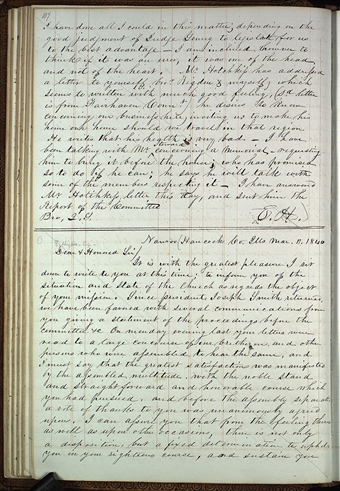 I have done all I could in this matter, depending on the
good judgment of Judge Young to legislate for us
to the best advantage — I am inclined however to
think if it was an error, it was one of the head
and not of the heart. Mr Hotchkiss has addressed
a letter to yourself, Bro. Rigdon & myself, which
seems to be written with much good feeling, (sd letter
is from Fairhaven Connt) he desires to know
concerning our business here, inviting us to make his
house our home should we travel in that region
He writes that his health is very bad — I have
been talking with Mr Stewart concerning a Memorial — requesting
him to bring it before the house, who has promised
so to do if he can; he says he will talk with
some of the members respecting it — I have answered
Mr Hotchkiss letter this day, and sent him the
Report of the Committee
E. H.
Nauvoo Hancock Co. Ills Mar. 11, 1840
Dear & Honored Sir/
It is with the greatest pleasure I sit
down to write to you at this time, to inform you of the
situation and State of the Church as regards the object
of your mission. Since president Joseph Smith returned,
we have been favored with several communications from
you giving a statement of the proceedings before the
committee &c On monday evening last your letters were
read to a large concourse of our brethren, and other
persons who were assembled to hear the same, and
I must say that the greatest satisfaction was manifested
by the assembled multitude, with the noble stand
and straightforward and honorable course which
you had pursued, and before the assembly separated
a vote of thanks to you was unanimously agreed
upon. I can assure you that from the feeling then
as well as upon other occasions, there is not only
a disposition, but a fixed determination to uphold
you in your righteous course, and sustain you